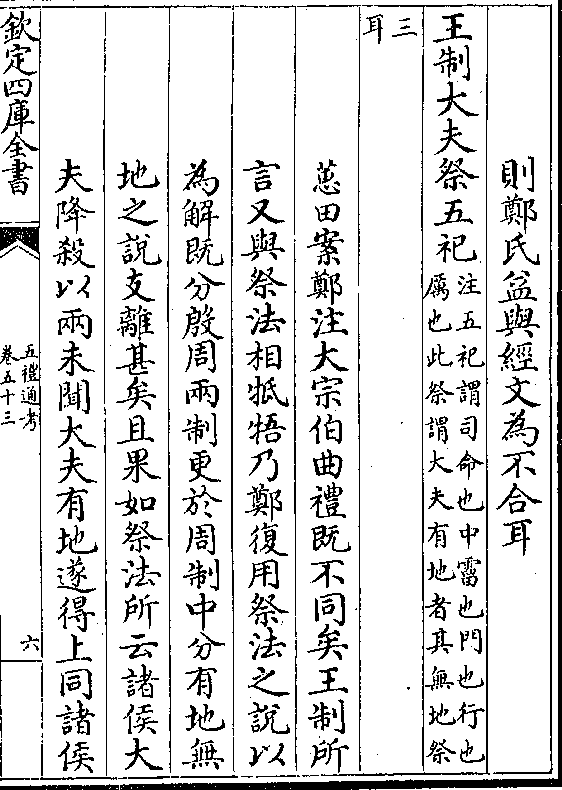 則鄭氏盆與經文為不合耳
王制大夫祭五祀
注五祀謂司命也中霤也門也行也
厲也此祭謂大夫有地者其無地祭
三
耳
蕙田案鄭注大宗伯曲禮既不同矣王制所
言又與祭法相牴牾乃鄭復用祭法之說以
為解既分殷周兩制更於周制中分有地無
地之說支離甚矣且果如祭法所云諸侯大
夫降殺以兩未聞大夫有地遂得上同諸侯
欽定四庫全書
五禮通考
卷五十三
六